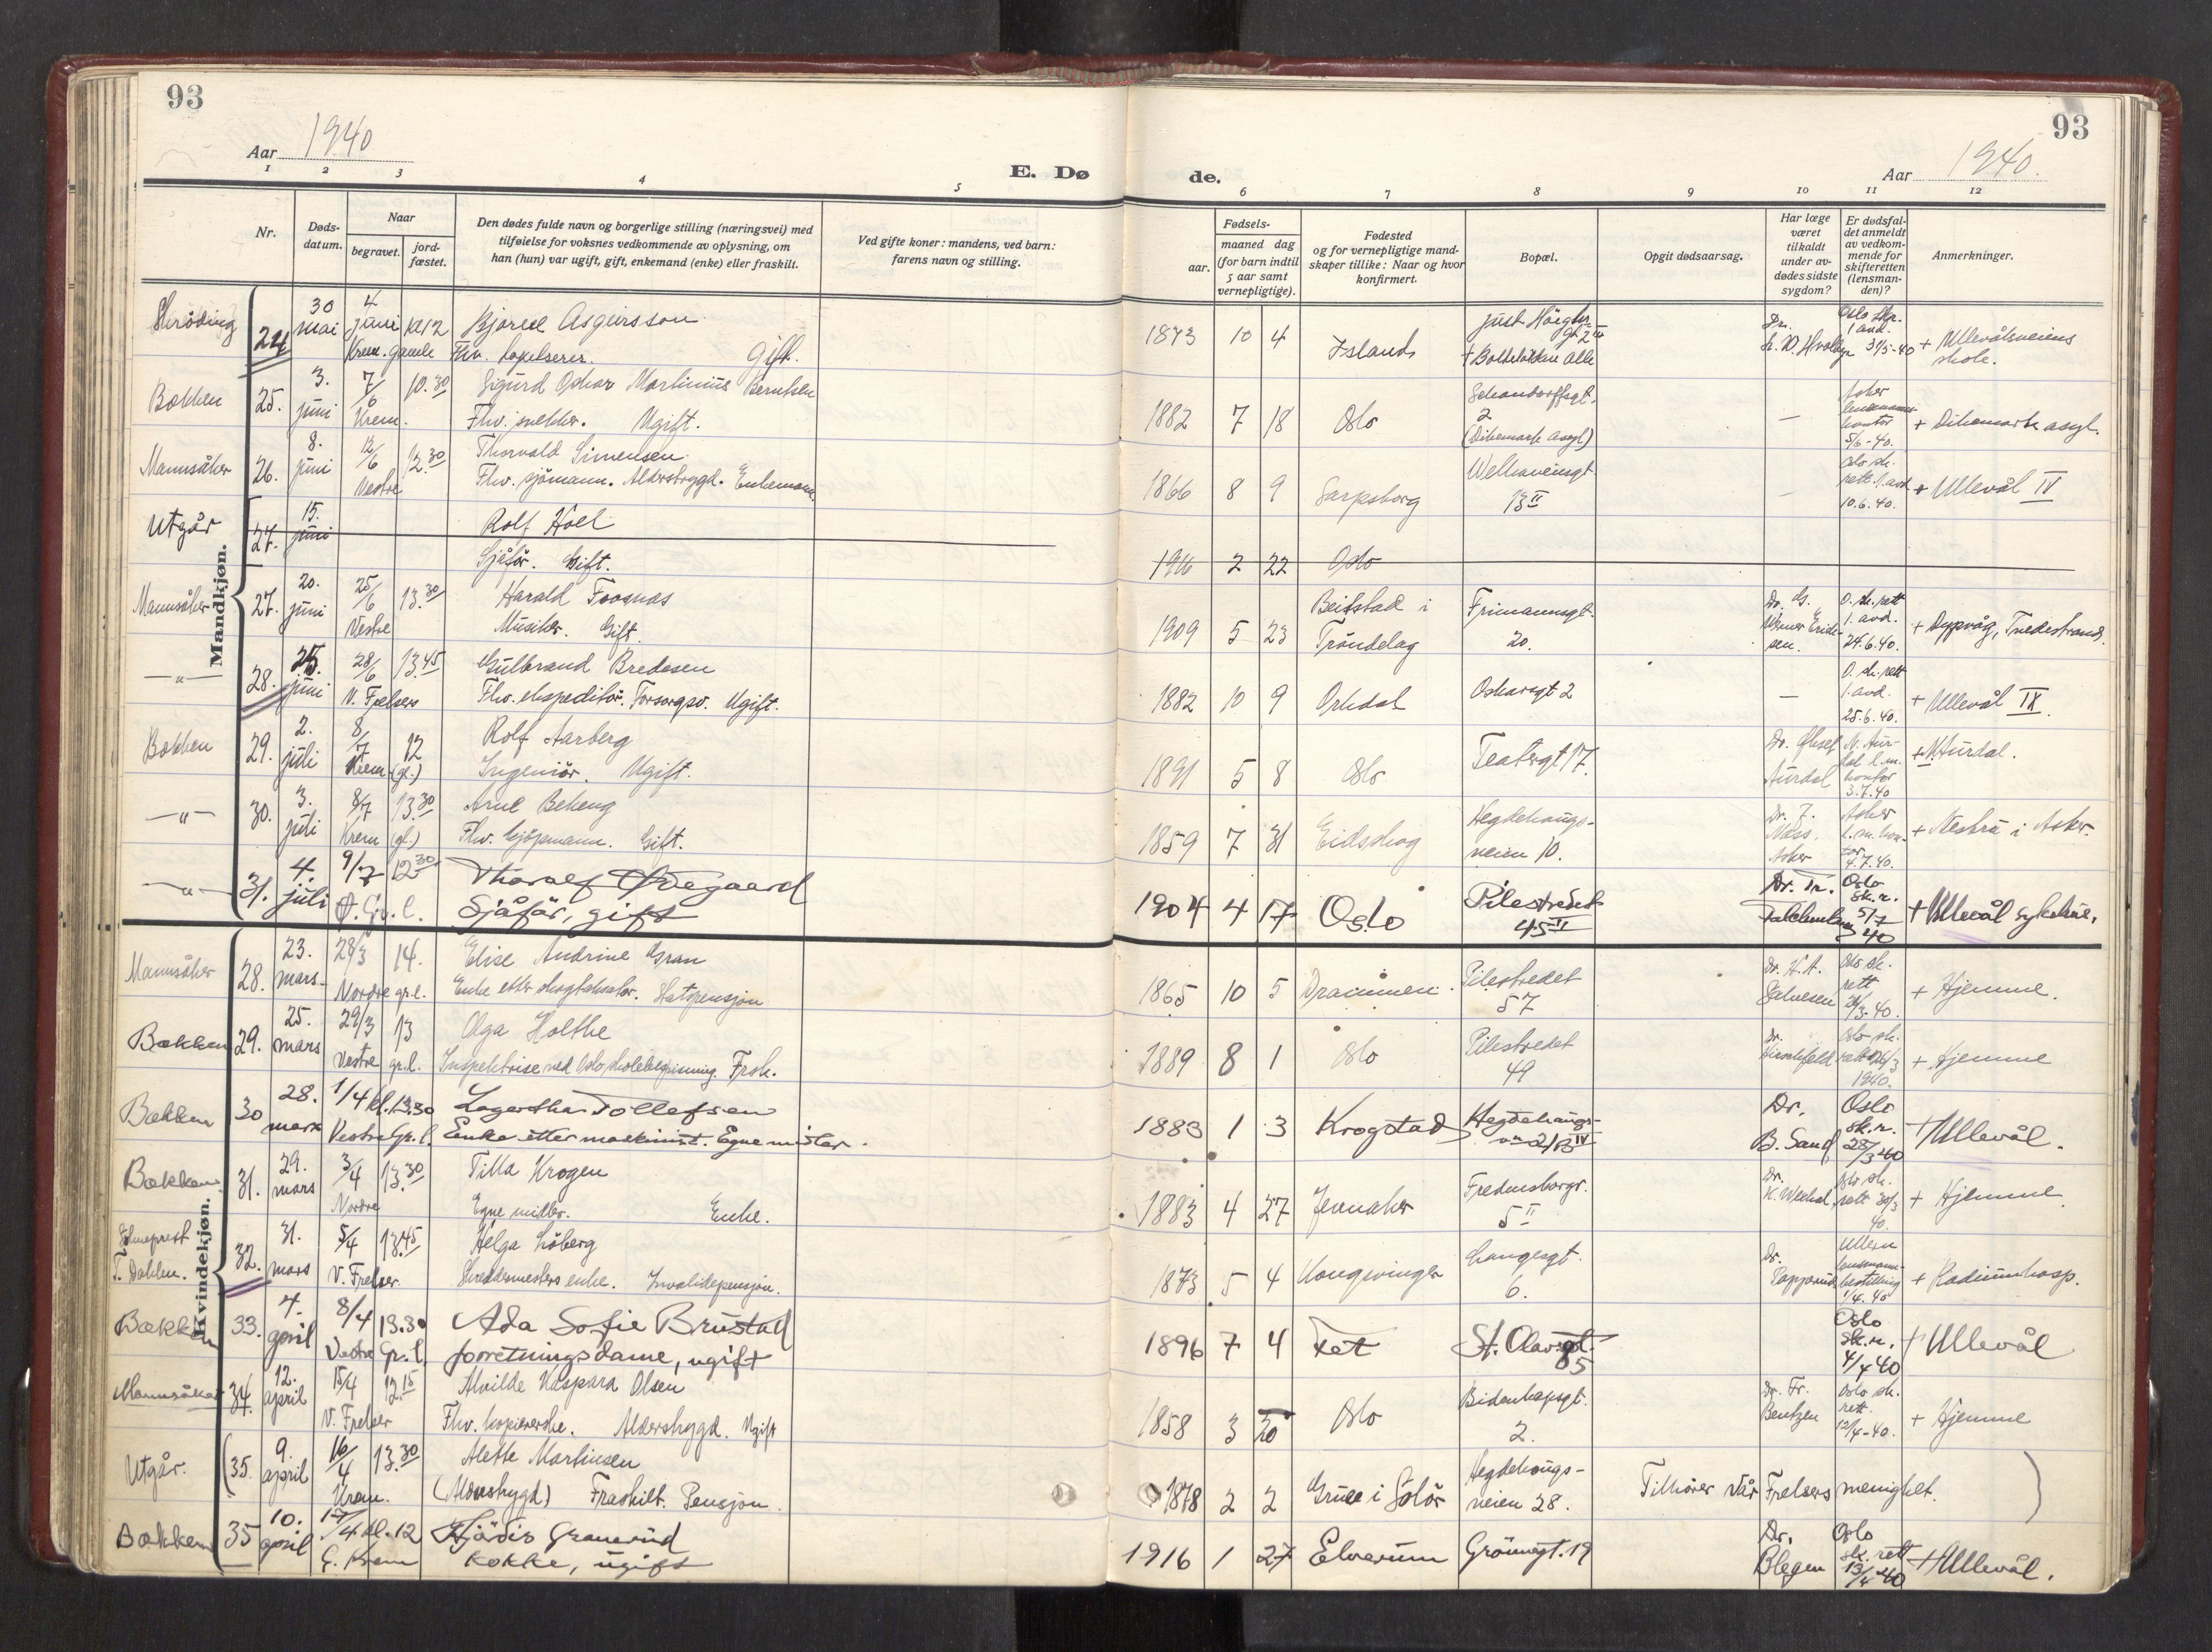 93
Aar 1940
E. Dø
1 2 3 4 5
Nr.
Døds-
datum.
Naar
begravet.
jord-
fæstet.
Den dødes fulde navn og borgerlige stilling (næringsvei) med
tilføielse for voksnes vedkommende av oplysning, om
han (hun) var ugift, gift, enkemand (enke) eller fraskilt.
Ved gifte koner: mandens, ved barn:
farens navn og stilling.
Mandkjøn.
24 30 mai 4 juni kl 12
Krem. gamle Fhv. Gift.
Bækken 25. 3. juni 7/6 10.30 Sigurd Oskar Martinius Berntsen
Krem. Fhv. snekker. Ugift.
Mannsåker 26. 8. juni 12/6 12.30 Thorvald Simensen
Vestre Fhv. sjømann. Alderstrygd. Enkemann
Utgår 27. 15. juni Rolf Hoel
Sjåfør. Gift.
Mannsåker 27. 20. juni 25/6 13.30 Harald Foosnæs
Vestre Musiker. Gift.
—"— 28. 25. juni 28/6 13.45 Gulbrand Bredesen
V. Frelsers Fhv. ekspeditør. Forsorgsv. Ugift.
Bækken 29. 2. juli 8/7 12 Rolf Aarberg
Krem (gl.) Ingeniør. Ugift.
—"— 30. 3. juli 8/7 13.30 Arne
Krem (gl.) Fhv. kjøpmann. Gift.
—"— 31. 4. juli 9/7 12.30 Thoralf Ødegaard
Ø. Gr. l. Sjåfør, gift
Kvindekjøn.
Mannsåker 28. 23. mars 28/3 14. Elise Andrine Gran
Nordre gr.l. Enke etter skogtaksator. Statspensjon
Bækken 29. 25. mars 29/3 13 Olga Holthe
Vestre gr.l. Inspektrise ved Oslo skolebespisning. Frsk.
Bækken 30 28. mars 1/4 kl. 13.30 Lagertha Tollefsen
Vestre Gr. l. Enke etter maskinist. Egne midler.
Bækken 31. 29. mars 3/4 13.30 Tilla Krogen
Nordre Egne midler. Enke.
T. Dahlen. 32. 31. mars 5/4 13.45 Helga Løberg
V. Frelser. Skreddermesters enke. Invalidepensjon.
Bækken 33. 4. april 8/4 13.30 Ada Sofie Brustad
Vestre Gr. l. forretningsdame, ugift
Mannsåker 34. 12. april 15/4 12.15 Alvilde Kaspara Olsen
V. Frelser Fhv. kopiererske. Alderstrygd. Ugift
Utgår. (35. 9. april 16/4 13.30 Alette Martinsen
Krem. (Alderstrygd) Fraskilt. Pensjon.
Bækken 35 10. april 17/4 kl. 12 Hjørdis Granerud
G. Krem kokke, ugift
93
de.
Aar 1940.
6 7 8 9 10 11 12
Fødsels-
aar.
maaned dag
(for barn indtil
5 aar samt
vernepligtige).
Fødested
og for vernepligtige mand-
skaper tillike: Naar og hvor
konfirmert.
Bopæl.
Opgit dødsaarsag.
Har læge
været
tilkaldt
under av-
dødes sidste
sygdom?
Er dødsfal-
det anmeldt
av vedkom-
mende for
skifteretten
(lensman-
den)?
Anmerkninger.
1873 10 4 Island Dr. 31/5-40 + Ullevålsveiens
skole.
1882 7 18 Oslo Schandorffsgt.
2
(Dikemark asyl) — Asker
lensmanns
kontor
5/6-40. + Dikemark asyl.
1866 8 9 Sarpsborg Welhavensgt.
13 II — Oslo sk.
rett 1. avd
10.6.40. + Ullevål IV
1916 2 22 Oslo
1909 5 23 Beitstad i
Trøndelag Frimannsgt.
20. Dr. G. O. sk. rett
1. avd.
24.6.40. + Dypvåg, Tvedestrand.
1882 10 9 Orkdal Oskarsgt 2 — O. sk. rett
1. avd.
25.6.40. + Ullevål IX.
1891 5 8 Oslo Teatergt 17. Aurdal N. Aur-
dal l.m.
kontor
3.7.40 + N. Aurdal.
1859 7 31 Eidskog Hegdehaugs-
veien 10. Dr. J.
Næss.
Asker Asker
l.m. kon-
tor
4.7.40. + Nesbru i Asker.
1904 4 17 Oslo Pilestredet
45 II Dr. Tr. Oslo
sk.r.
5/7
40 + Ullevål sykehus.
1865 10 5 Drammen. Pilestredet
57 Dr. H. A.
Salvesen Oslo sk.
rett
26/3-40. + Hjemme.
1889 8 1 Oslo Pilestredet
49 Dr.
Hirschfeld Oslo sk.
rett 26/3
1940. + Hjemme
1883 1 3 Krogstad Hegdehaugs-
vn 21 B IV Dr.
B. Sand Oslo
sk.r.
28/3 40 + Ullevål.
1883 4 27 Jevnaker Fredensborgv.
5 II Dr. Oslo sk.
rett 30/3
40. + Hjemme
1873 5 4 Kongsvinger Langesgt.
6. Dr. Ullern
lensmanns-
bestilling
1/4. 40 + Radiumhosp.
1896 7 4 Fet St. Olavsgt.
Oslo
sk.r.
4/4 40 + Ullevål
1858 3 20 Oslo Bidenkapsgt.
2. Dr. Fr.
Bentzen Oslo sk.
rett.
12/4-40. + Hjemme
1878 2 2 Grue i Solør Hegdehaugs-
veien 28. Tilhører Vår Frelsers menighet. )
1916 1 27 Elverum Grønnegt. 19 Dr.
Blegen Oslo
sk. rett
13/4 40 + Ullevål.